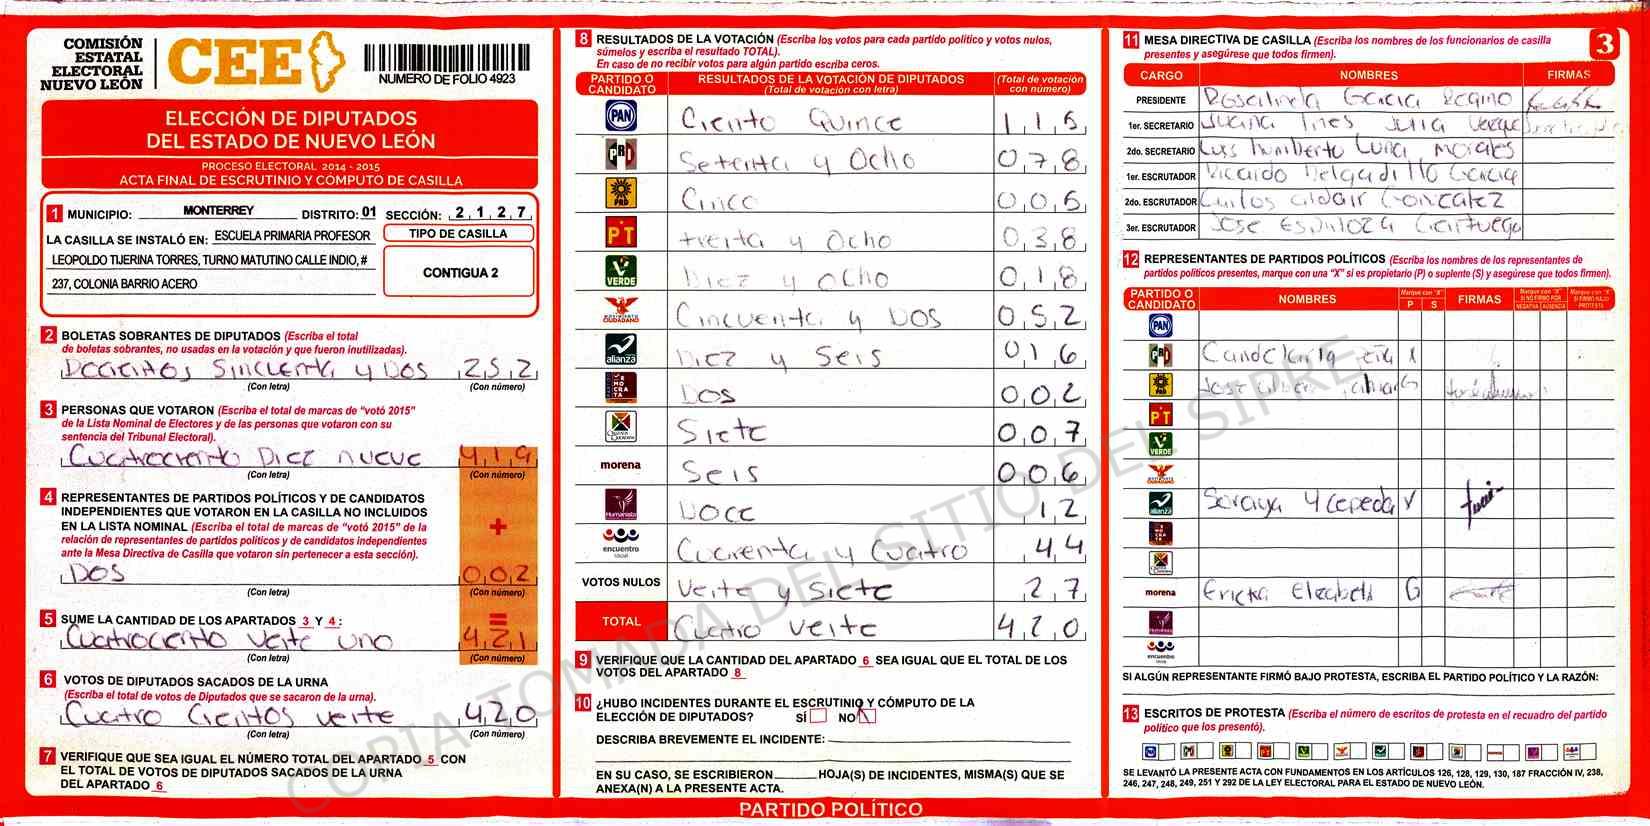 COMISIÓN
ESTATAL
ELECTORAL
NUEVO LEÓN
CEE
NUMERO DE FOLIO 4923
ELECCIÓN DE DIPUTADOS
DEL ESTADO DE NUEVO LEÓN
PROCESO ELECTORAL 2014 - 2015
ACTA FINAL DE ESCRUTINIO Y CÓMPUTO DE CASILLA
1 MUNICIPIO: MONTERREY DISTRITO: 01 SECCIÓN: 2 1 2 7
LA CASILLA SE INSTALÓ EN: ESCUELA PRIMARIA PROFESOR
LEOPOLDO TIJERINA TORRES, TURNO MATUTINO CALLE INDIO, #
237, COLONIA BARRIO ACERO
TIPO DE CASILLA
CONTIGUA 2
2 BOLETAS SOBRANTES DE DIPUTADOS (Escriba el total
de boletas sobrantes, no usadas en la votación y que fueron inutilizadas).
Docientos Sincuenta y Dos 252
(Con letra) (Con número)
3 PERSONAS QUE VOTARON (Escriba el total de marcas de "votó 2015"
de la Lista Nominal de Electores y de las personas que votaron con su
sentencia del Tribunal Electoral).
Cuatrociento Diez nueve 419
(Con letra) (Con número)
4 REPRESENTANTES DE PARTIDOS POLÍTICOS Y DE CANDIDATOS
INDEPENDIENTES QUE VOTARON EN LA CASILLA NO INCLUIDOS
EN LA LISTA NOMINAL (Escriba el total de marcas de "votó 2015" de la
relación de representantes de partidos políticos y de candidatos independientes
ante la Mesa Directiva de Casilla que votaron sin pertenecer a esta sección).
+
DOS 002
(Con letra) (Con número)
=
5 SUME LA CANTIDAD DE LOS APARTADOS 3 Y 4:
Cuatrociento veite uno 421
(Con letra) (Con número)
6 VOTOS DE DIPUTADOS SACADOS DE LA URNA
(Escriba el total de votos de Diputados que se sacaron de la urna).
Cuatro Cientos veite 420
(Con letra) (Con número)
7 VERIFIQUE QUE SEA IGUAL EL NÚMERO TOTAL DEL APARTADO 5 CON
EL TOTAL DE VOTOS DE DIPUTADOS SACADOS DE LA URNA
DEL APARTADO 6
8 RESULTADOS DE LA VOTACIÓN (Escriba los votos para cada partido político y votos nulos,
súmelos y escriba el resultado TOTAL).
En caso de no recibir votos para algún partido escriba ceros.
PARTIDO O CANDIDATO RESULTADOS DE LA VOTACIÓN DE DIPUTADOS (Total de votación con letra) (Total de votación con número)
PAN Ciento Quince 115
PRI Setenta y Ocho 078
PRD Cinco 005
PT treita y Ocho 038
VERDE Diez y Ocho 018
MOVIMIENTO CIUDADANO Cincuenta y DOS 052
alianza Diez y Seis 016
DEMOCRATA DOS 002
Siete 007
morena Seis 006
Humanista Doce 12
encuentro social Cuarenta y Cuatro 44
VOTOS NULOS Veite y Siete 27
TOTAL Cuatro veite 420
9 VERIFIQUE QUE LA CANTIDAD DEL APARTADO 6 SEA IGUAL QUE EL TOTAL DE LOS
VOTOS DEL APARTADO 8
10 ¿HUBO INCIDENTES DURANTE EL ESCRUTINIO Y CÓMPUTO DE LA
ELECCIÓN DE DIPUTADOS? SÍ NO
DESCRIBA BREVEMENTE EL INCIDENTE:
EN SU CASO, SE ESCRIBIERON HOJA(S) DE INCIDENTES, MISMA(S) QUE SE
ANEXA(N) A LA PRESENTE ACTA.
PARTIDO POLÍTICO
11 MESA DIRECTIVA DE CASILLA (Escriba los nombres de los funcionarios de casilla
presentes y asegúrese que todos firmen).
3
CARGO NOMBRES FIRMAS
PRESIDENTE Rosalinda Garcia
1er. SECRETARIO Juana Ines
2do. SECRETARIO Luis Humberto Luna Morales
1er. ESCRUTADOR Ricardo Delgadillo Garcia
2do. ESCRUTADOR Carlos aldair Gonzalez
3er. ESCRUTADOR Jose Espinoza
12 REPRESENTANTES DE PARTIDOS POLÍTICOS (Escriba los nombres de los representantes de
partidos políticos presentes, marque con una "X" si es propietario (P) o suplente (S) y asegúrese que todos firmen).
PARTIDO O CANDIDATO NOMBRES Marque con "X" P S FIRMAS Marque con "X" SI NO FIRMÓ POR NEGATIVA AUSENCIA Marque con "X" SI FIRMÓ BAJO PROTESTA
PAN
PRI Candelaria X
PRD Jose
PT
VERDE
alianza Soraya Y Cepeda
morena Ericka Elizabeth
Humanista
encuentro social
SI ALGÚN REPRESENTANTE FIRMÓ BAJO PROTESTA, ESCRIBA EL PARTIDO POLÍTICO Y LA RAZÓN:
13 ESCRITOS DE PROTESTA (Escriba el número de escritos de protesta en el recuadro del partido
político que los presentó).
SE LEVANTÓ LA PRESENTE ACTA CON FUNDAMENTOS EN LOS ARTÍCULOS 126, 128, 129, 130, 187 FRACCIÓN IV, 238,
246, 247, 248, 249, 251 Y 292 DE LA LEY ELECTORAL PARA EL ESTADO DE NUEVO LEÓN.
COPIA TOMADA DEL SITIO DEL SIPRE